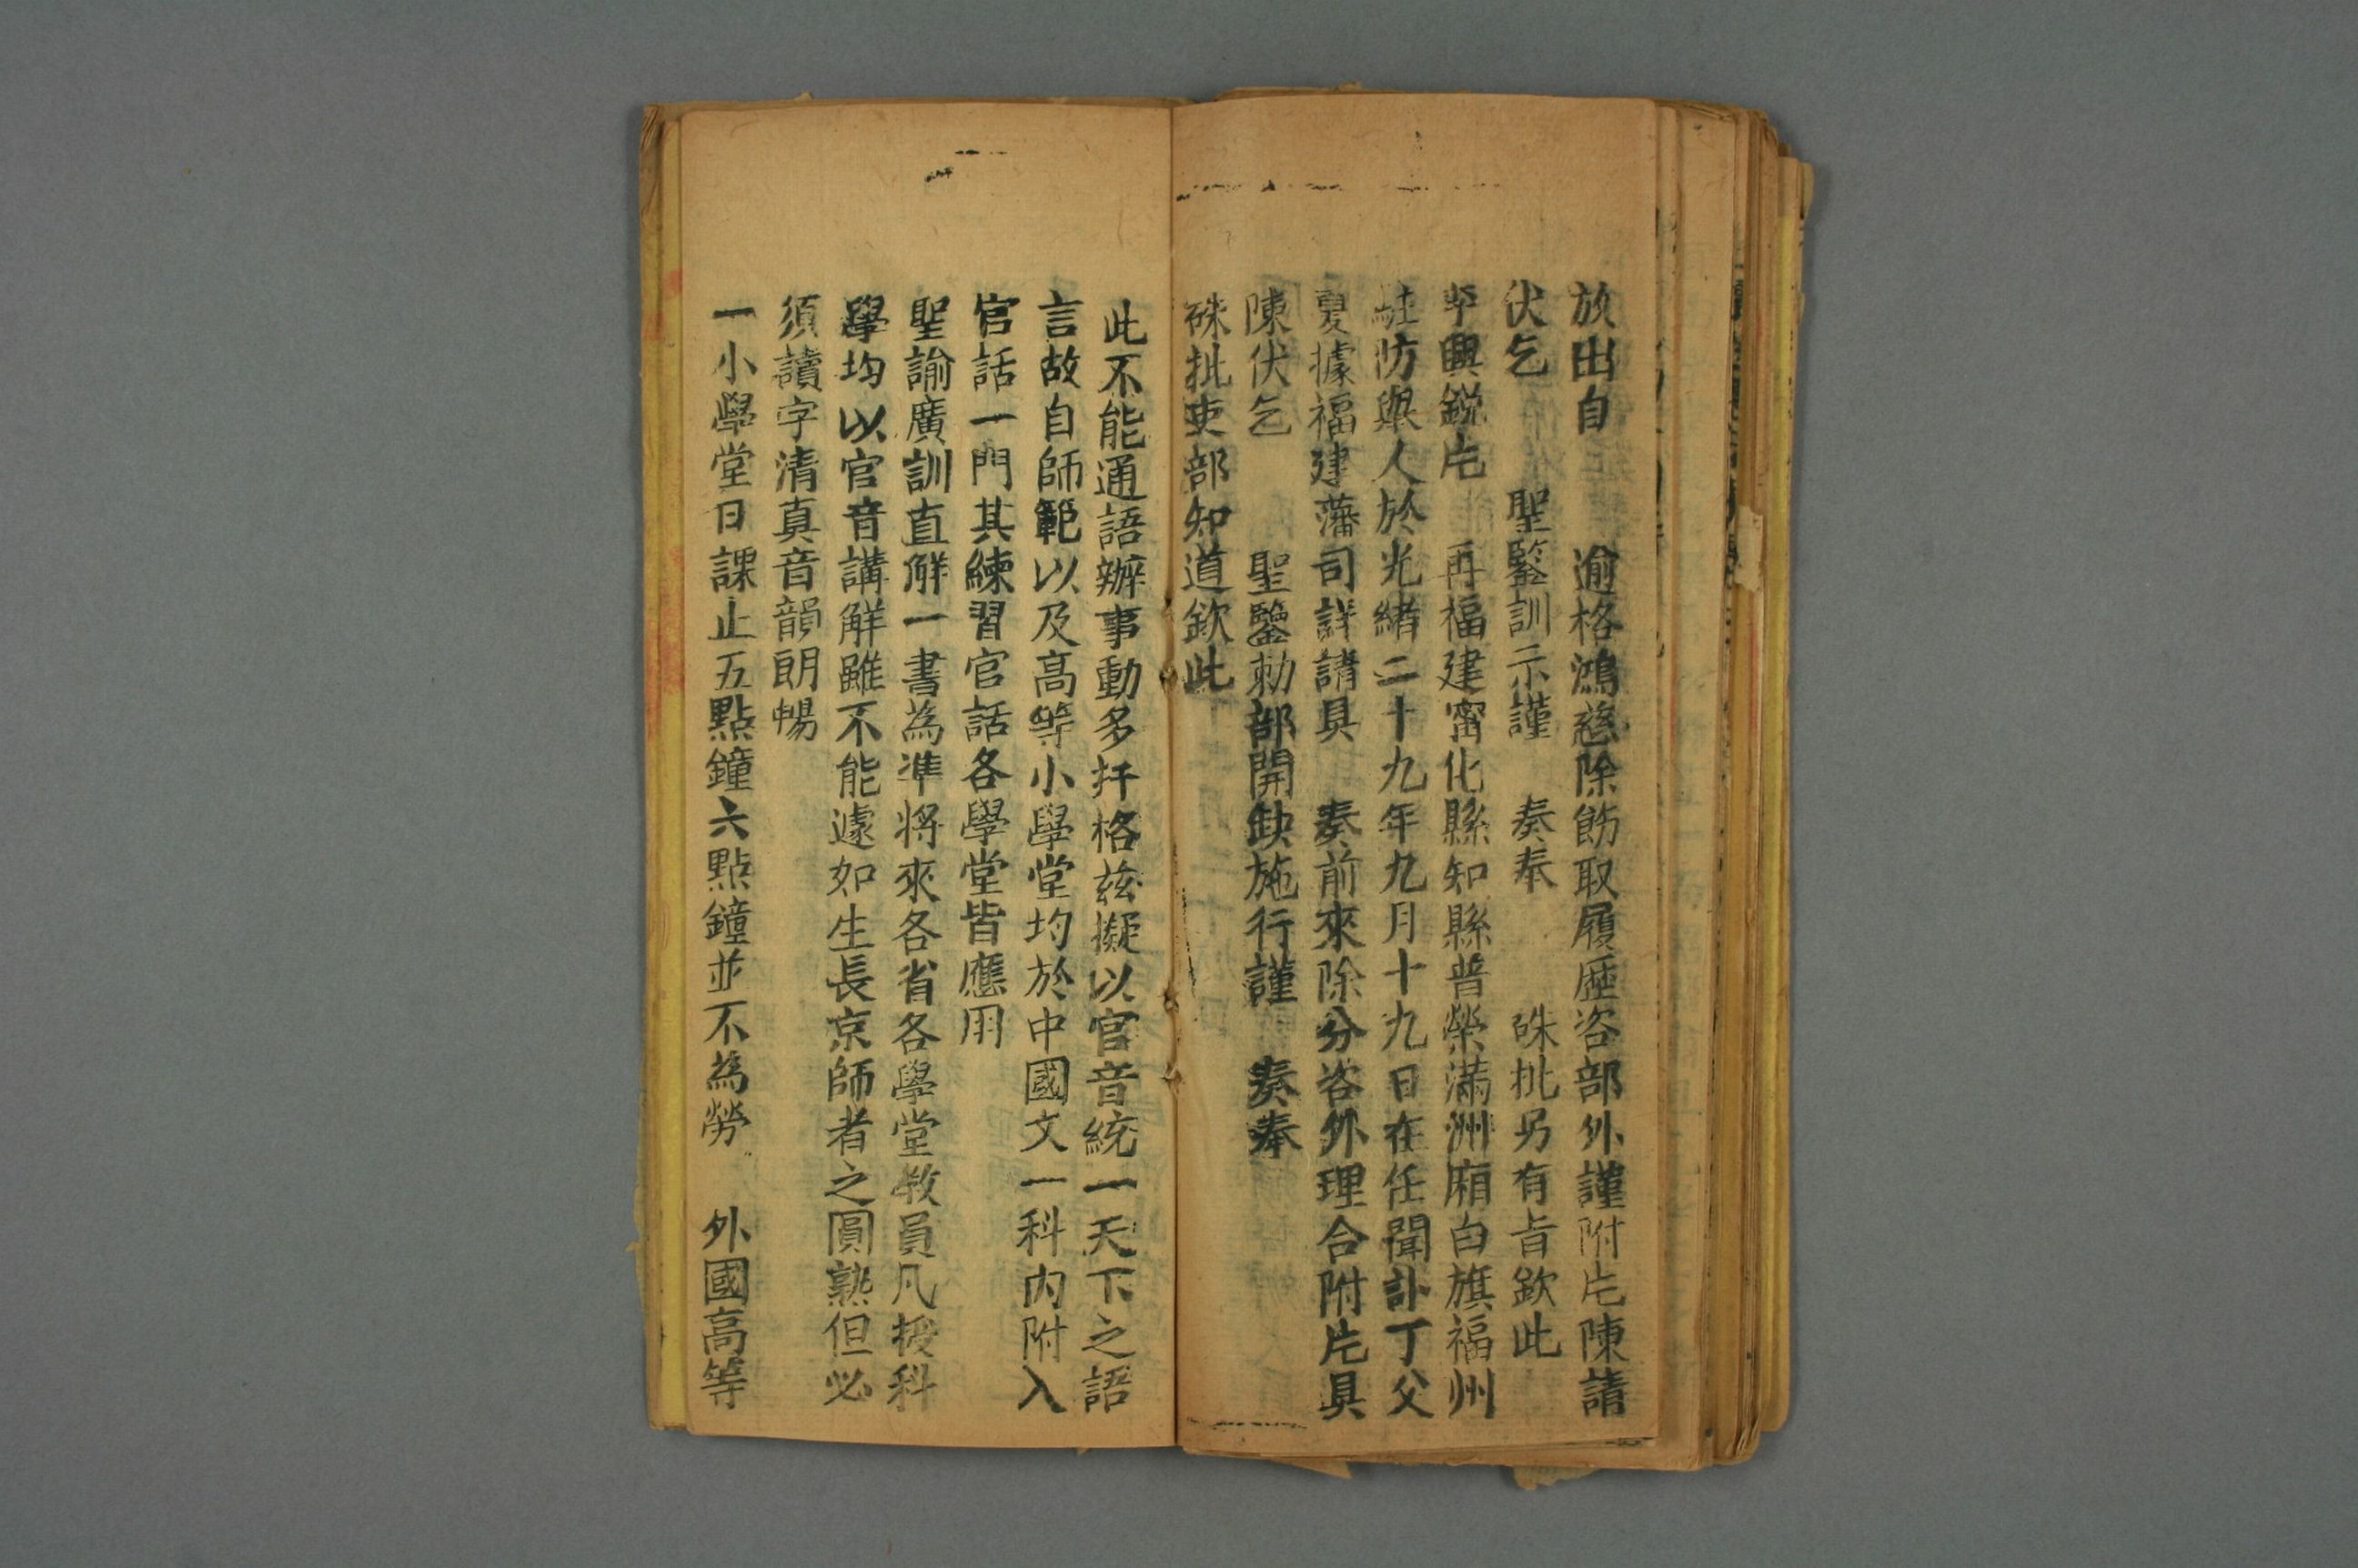 放出自　　逾格鴻慈除飭取履歷咨部外謹附片陳請
伏乞　　聖鑒訓示謹　奏奉　　硃批另有旨欽此
興銳片　再福建甯化縣知縣普榮滿洲廂白旗福州
駐防舉人於光緒二十九年九月十九日在任聞訃丁父
憂據福建藩司詳請具　奏前來除分咨外理合附片具
陳伏乞　　聖鑒勅部開缺施行謹　奏奉
硃批吏部知道欽此
此不能通語辦事動多扞格茲擬以官音統一天下之語
言故自師範以及高等小學堂均於中國文一科內附入
官話一門其練習官話各學堂皆應用
聖諭廣訓直解一書為準將來各省各學堂教員凡授科
學均以官音講解雖不能遽如生長京師者之圓熟但必
須讀字清真音韻朗暢
一小學堂日課止五點鐘六點鐘並不為勞　外國高等